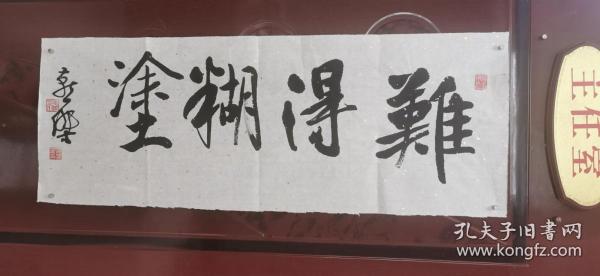 難得糊塗
主任室
孔夫子旧书网
www.kongfz.com